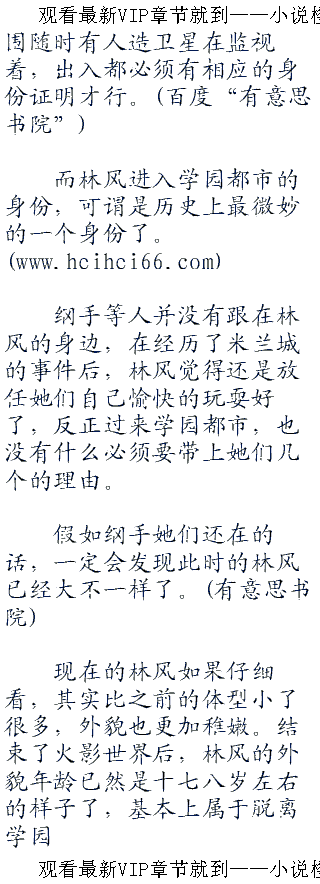 观看最新VIP章节就到——小说
围随时有人造卫星在监视
着，出入都必须有相应的身
份证明才行。(百度“有意思
书院”)
而林风进入学园都市的
身份，可谓是历史上最微妙
的一个身份了。
(www.hcihci66.com)
纲手等人并没有跟在林
风的身边，在经历了米兰城
的事件后，林风觉得还是放
任她们自己愉快的玩耍好
了，反正过来学园都市，也
没有什么必须要带上她们几
个的理由。
假如纲手她们还在的
话，一定会发现此时的林风
已经大不一样了。(有意思书
院)
现在的林风如果仔细
看，其实比之前的体型小了
很多，外貌也更加稚嫩。结
束了火影世界后，林风的外
貌年龄已然是十七八岁左右
的样子了，基本上属于脱离
学园
观看最新VIP章节就到——小说